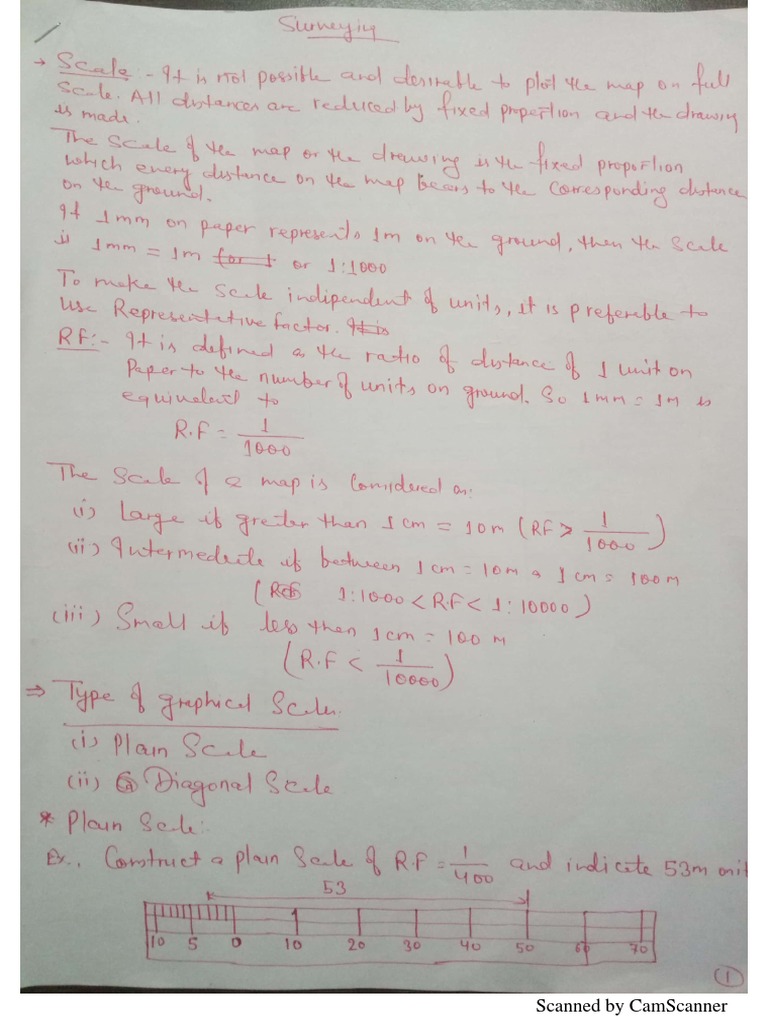 Surveying
→ Scale :- It is not possible and desirable to plot the map on full
Scale. All distances are reduced by fixed propertion and the drawing
is made.
The Scale of the map or the drawing is the fixed proportion
which every distance on the map bears to the corresponding distance
on the ground.
If 1mm on paper represents 1m on the ground, then the scale
is 1mm = 1m or 1:1000
To make the scale indipendent of units, it is preferable to
use Representative factor.
RF:- It is defined as the ratio of distance of 1 unit on
Paper to the number of units on ground. So 1mm = 1m is
equivalent to
R.F = 1/1000
The Scale of a map is Considered as:
(i) Large if greter than 1cm = 10m (RF > 1/1000)
(ii) Intermediate if between 1cm = 10m & 1cm = 100m
(1:1000 < R.F < 1:10000)
(iii) Small if less then 1cm = 100m
(R.F < 1/10000)
⇒ Type of graphical Scales:
(i) Plain Scale
(ii) Diagonal Scale
* Plain Scale:
Ex., Construct a plain Scale of R.F = 1/400 and indicate 53m on it
53
10 5 0 10 20 30 40 50 60 70
1
Scanned by CamScanner